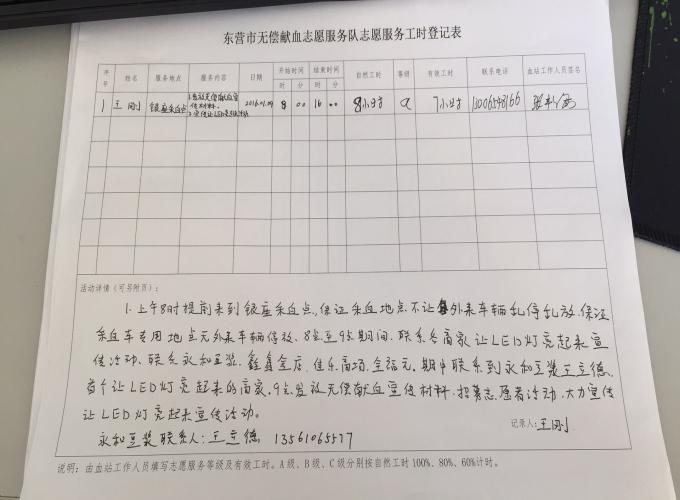 东营市无偿献血志愿服务队志愿服务工时登记表
序号 姓名 服务地点 服务内容 日期 开始时间 结束时间 自然工时 等级 有效工时 联系电话 血站工作人员签名
时 分 时 分
1 王刚 银座采血点 1.发放无偿献血宣传材料。 2.宣传让LED亮起来活动 2016.01.09 8 00 16 00 8小时 a 7小时
活动详情（可另附页）：
1.上午8时提前来到银座采血点,保证采血地点不让外来车辆乱停乱放.保证
采血车专用地点无外来车辆停放、8点至9点期间、联系各商家让LED灯亮起来宣
传活动、联系永和豆浆、鑫鑫金店、佳乐商场、金福元.期中联系到永和豆浆王立德.
首个让LED灯亮起来的商家.9点发放无偿献血宣传材料.招募志愿者活动.大力宣传
让LED灯亮起来宣传活动。
永和豆浆联系人:王立德 13561065577
记录人：王刚
说明：由血站工作人员填写志愿服务等级及有效工时。A级、B级、C级分别按自然工时100%、80%、60%计时。